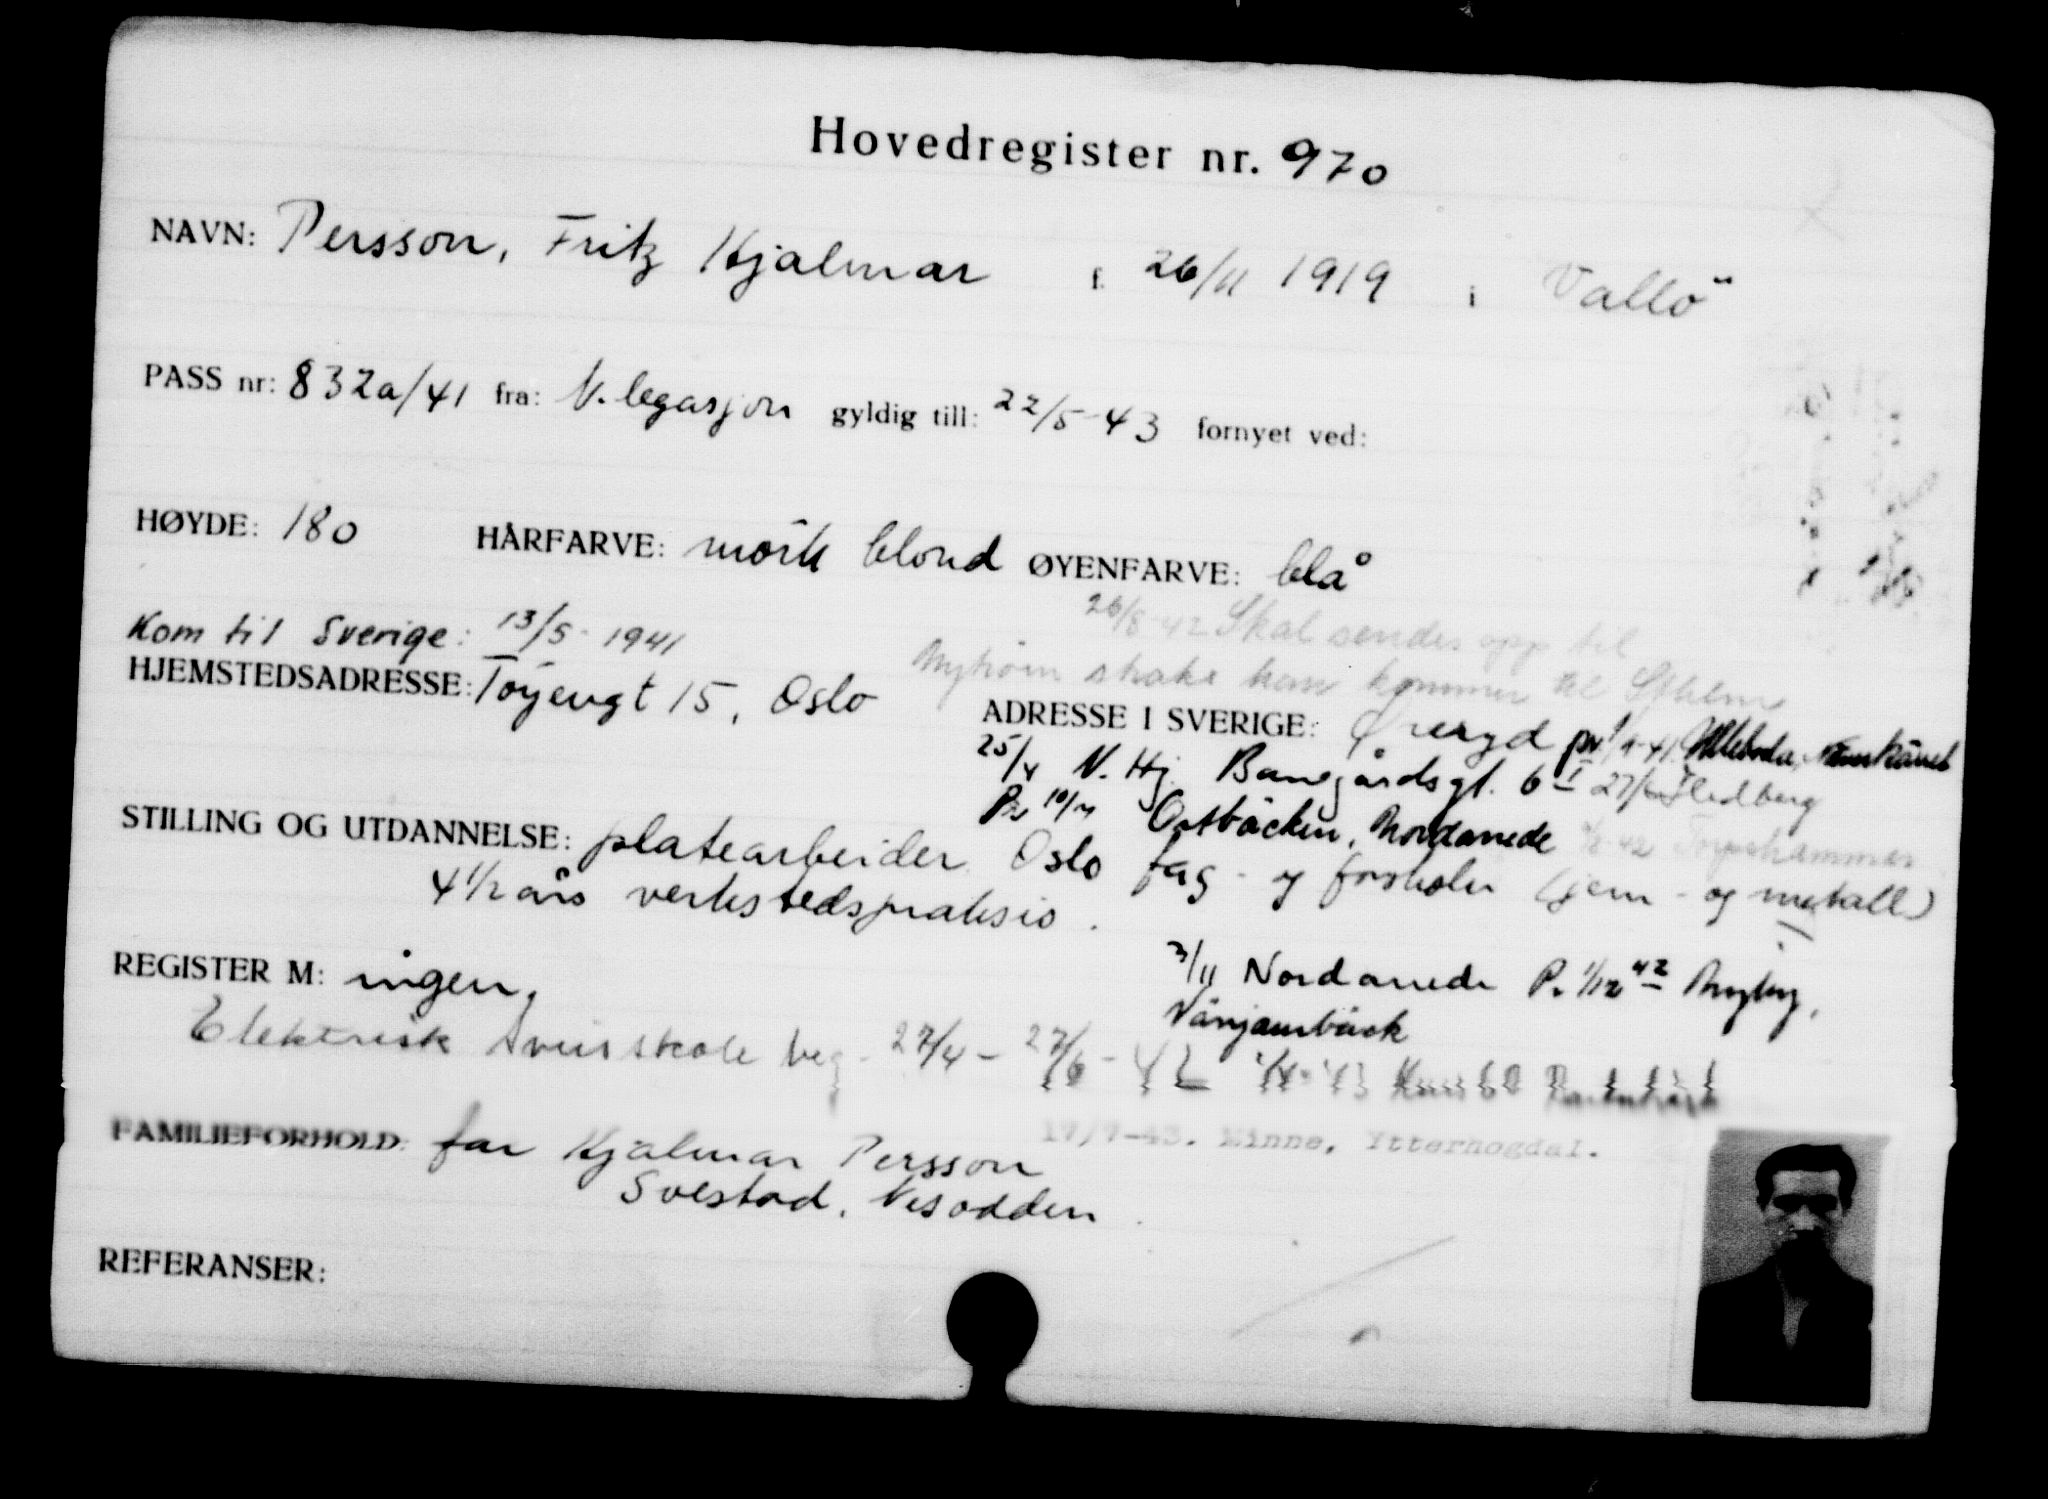 Hovedregister nr. 970
NAVN: Persson, Fritz Hjalmar f. 26/11 1919 i Vallö
PASS nr: 832a/41 fra: N. legasjon gyldig till: 22/5-43 fornyet ved:
HØYDE: 180 HÅRFARVE: mörk blond ØYENFARVE: blå
26/8-42 Skal sendes opp til
Kom til Sverige: 13/5-1941
straks han kommer til Sthlm
HJEMSTEDSADRESSE: Töyengt 15, Oslo
ADRESSE I SVERIGE: Øreryd pr 1/9-41
25/4 N. Hj. Banegårdsgt. 6 I 27/6 Hedberg
Pr 10/7 Ostbäcken, Nordanede
STILLING OG UTDANNELSE: platearbeider. Oslo fag- og forskoler (jern- og metall)
4 1/2 års verkstedspraksis.
REGISTER M: ingen.
3/11 Nordanede P. 1/12 42
Vånjaurbäck
Elektrisk sveiseskole beg. 27/4 - 27/6-42
FAMILIEFORHOLD: far Hjalmar Persson
Svestad, Nesodden.
19/7-43. Minne, Ytterhogdal.
REFERANSER: